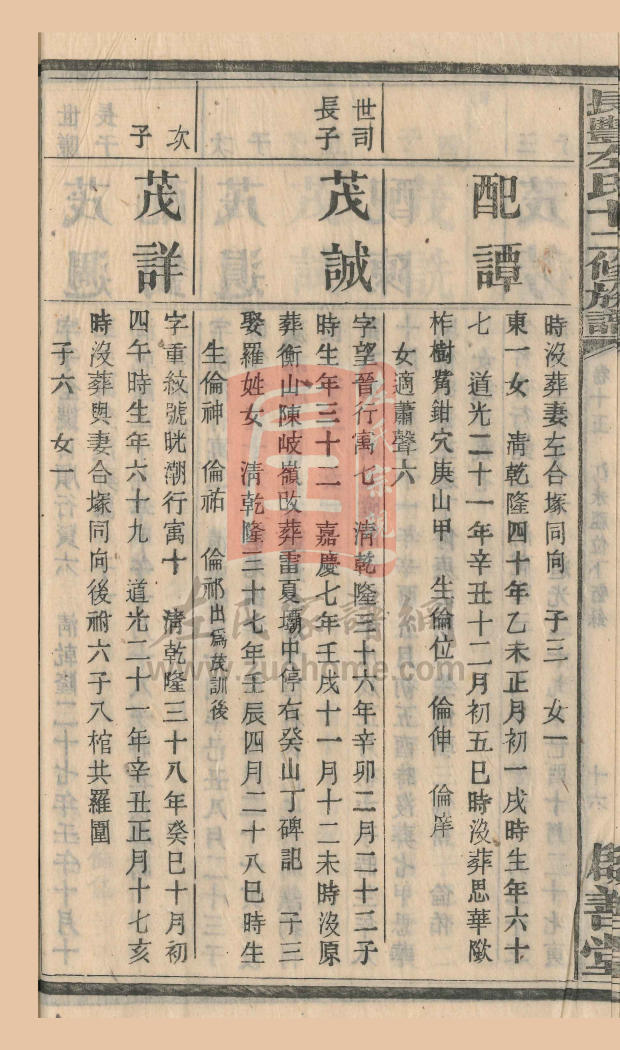 長豐左氏十二修族譜
啟善堂
時沒葬妻左合塚同向 子三 女一
配譚
東一女 清乾隆四十年乙未正月初一戌時生年六十
七 道光二十一年辛丑十二月初五巳時沒葬思華
柞樹 鉗穴庚山甲 生倫位 倫伸
女適蕭聲六
世司長子
茂誠
字望晉行寓七 清乾隆三十六年辛卯二月二十三子
時生年三十二 嘉慶七年壬戌十一月十二未時沒原
葬衡山陳岐嶺改葬雷夏壩中停右癸山丁碑記 子三
娶羅姓女 清乾隆三十七年壬辰四月二十八巳時生
生倫神 倫祐 倫祁出為茂訓後
次子
茂詳
字重紋號晄潮行寓十 清乾隆三十八年癸巳十月初
四午時生年六十九 道光二十一年辛丑正月十七亥
時沒葬與妻合塚同向後祔六子八棺共羅圍
子六 女一
左氏家譜網
www.zuohome.com